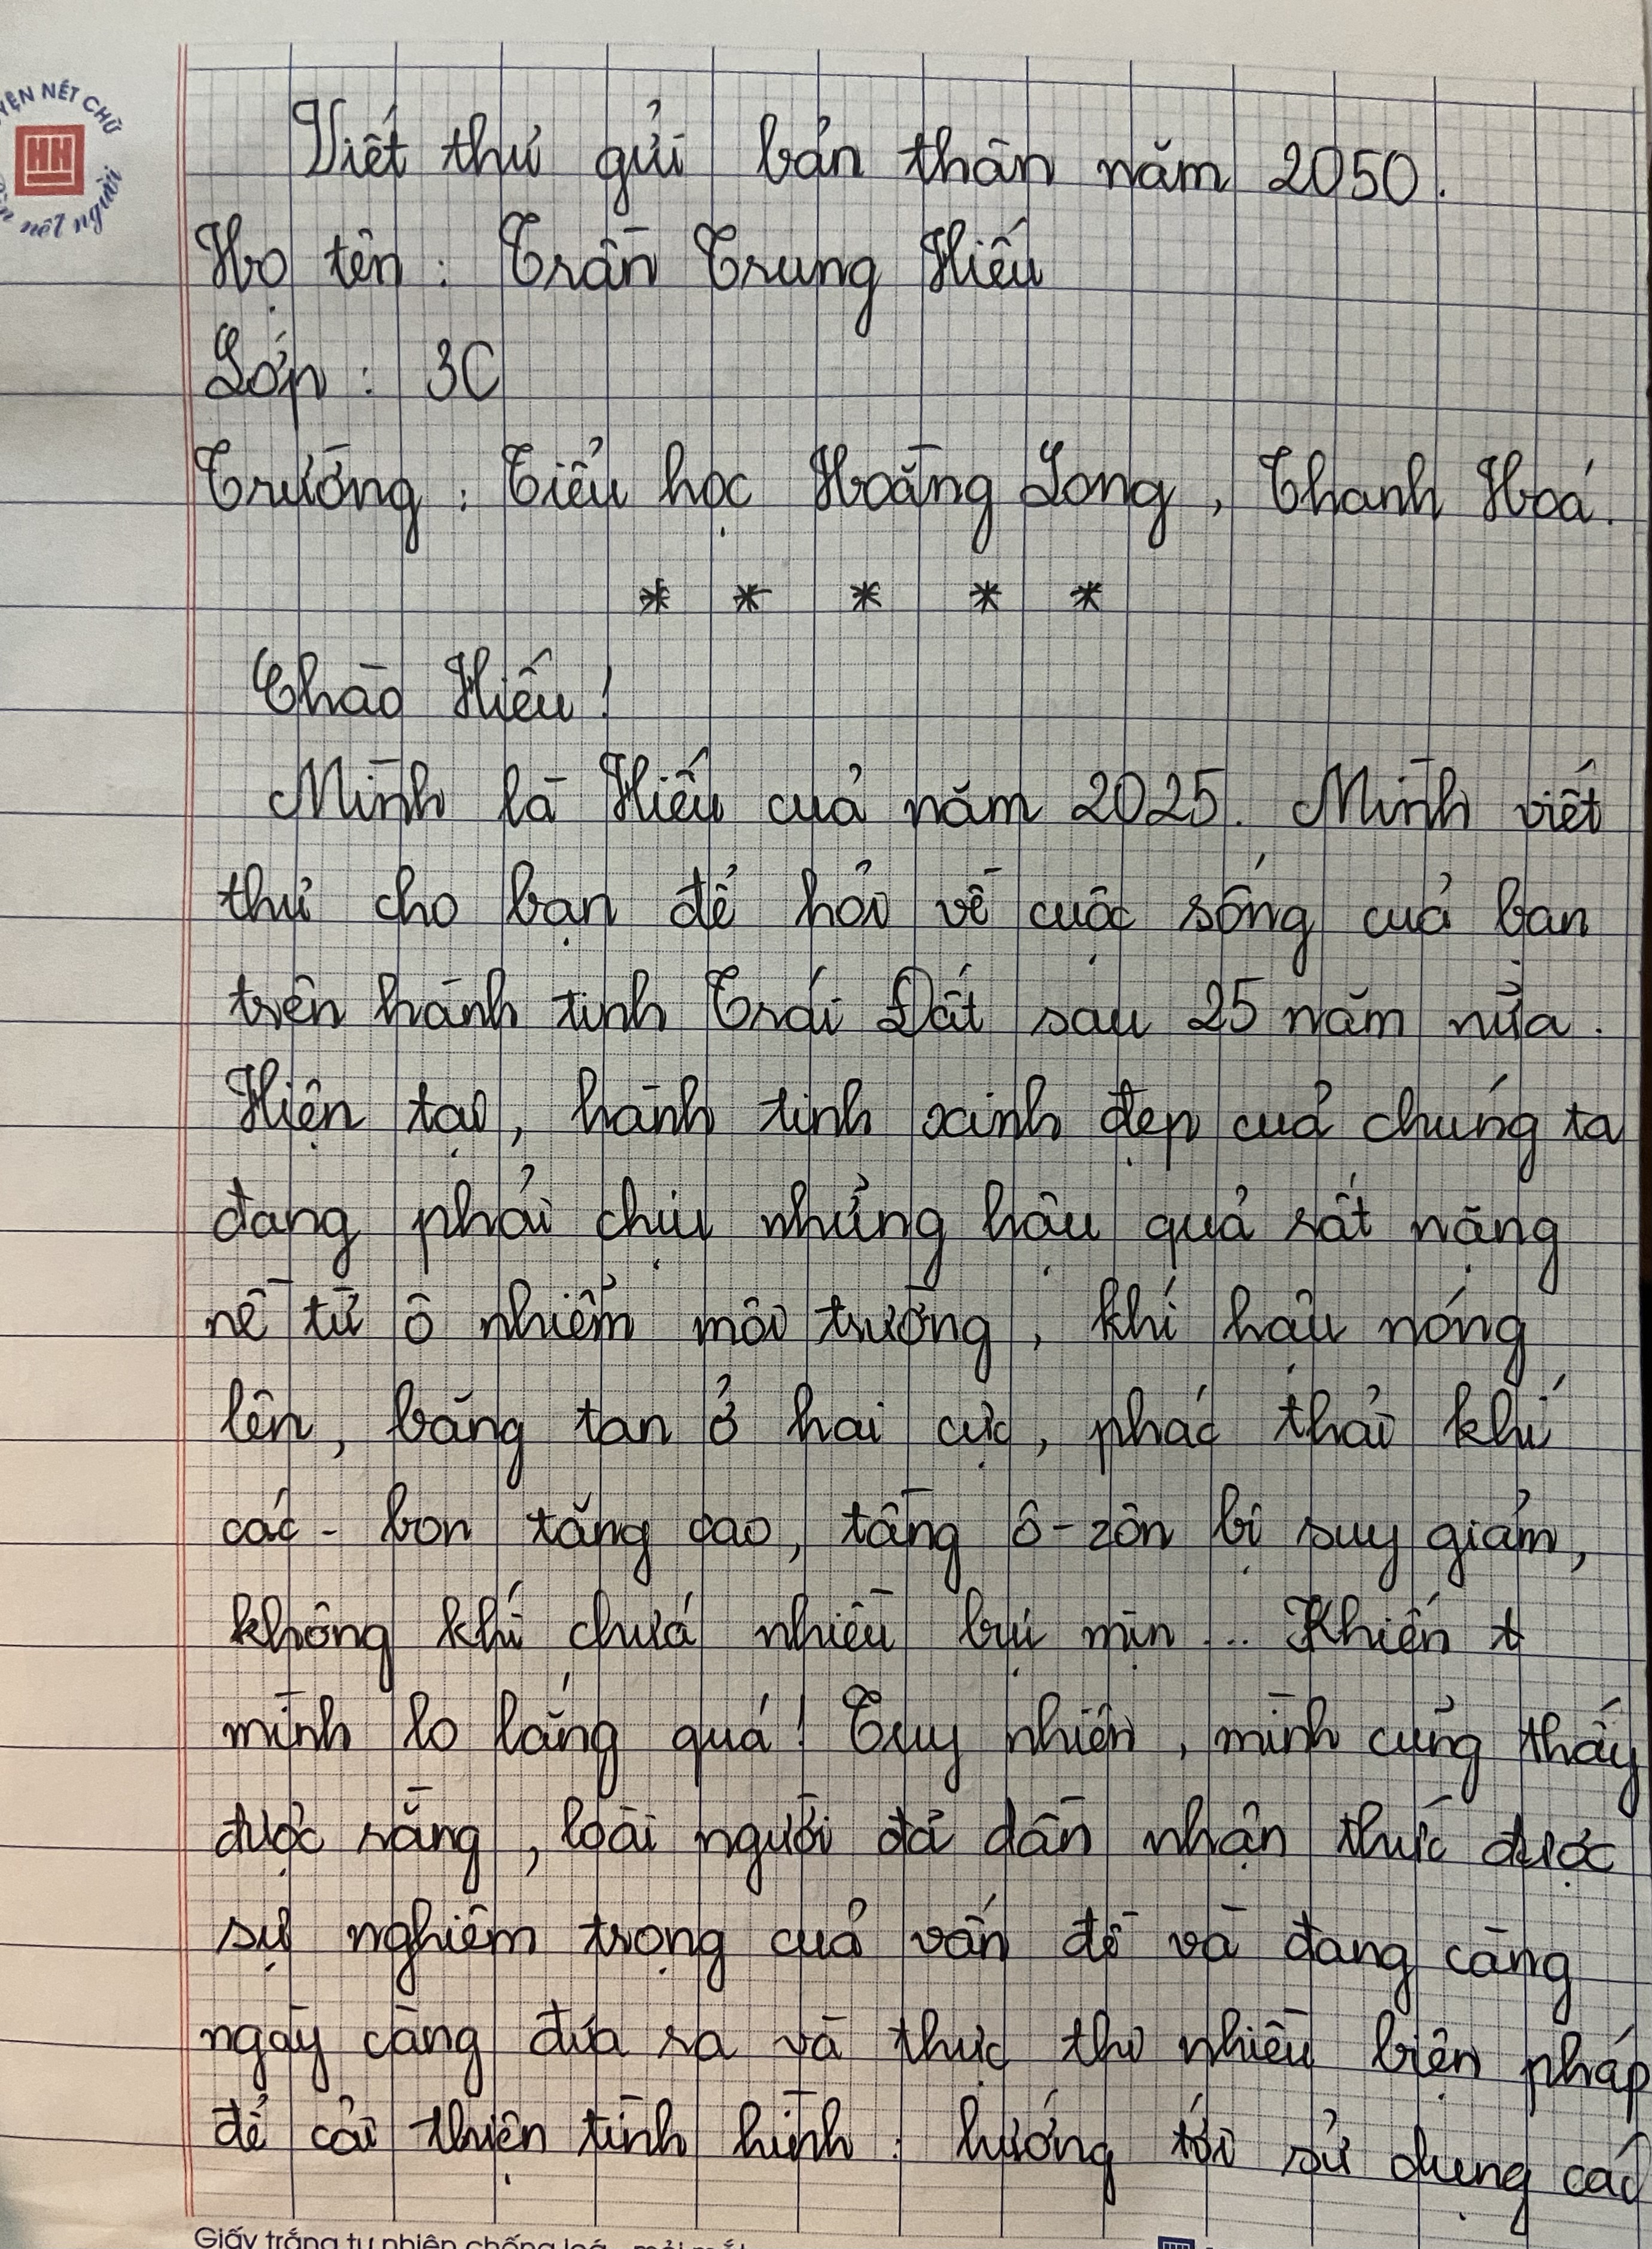 YỆN NÉT CHỮ
HH
nết người
Viết thư gửi bản thân năm 2050.
Họ tên : Trần Trung Hiếu
Lớp : 3C
Trường : Tiểu học Hoằng Long, Thanh Hoá.
* * * * *
Chào Hiếu !
Mình là Hiếu của năm 2025. Mình viết
thư cho bạn để hỏi về cuộc sống của bạn
trên hành tinh Trái Đất sau 25 năm nữa.
Hiện tại, hành tinh xinh đẹp của chúng ta
đang phải chịu những hậu quả rất nặng
nề từ ô nhiễm môi trường, khí hậu nóng
lên, băng tan ở hai cực, phác thải khí
các-bon tăng cao, tầng ô-zôn bị suy giảm,
không khí chứa nhiều bụi mịn... Khiến t
mình lo lắng quá! Tuy nhiên, mình cũng thấy
được rằng, loài người đã dần nhận thức được
sự nghiêm trọng của vấn đề và đang càng
ngày càng đưa ra và thực thi nhiều biện pháp
để cải thiện tình hình : hướng tới sử dụng các
Giấy trắng tự nhiên chống loá, mỏi mắt